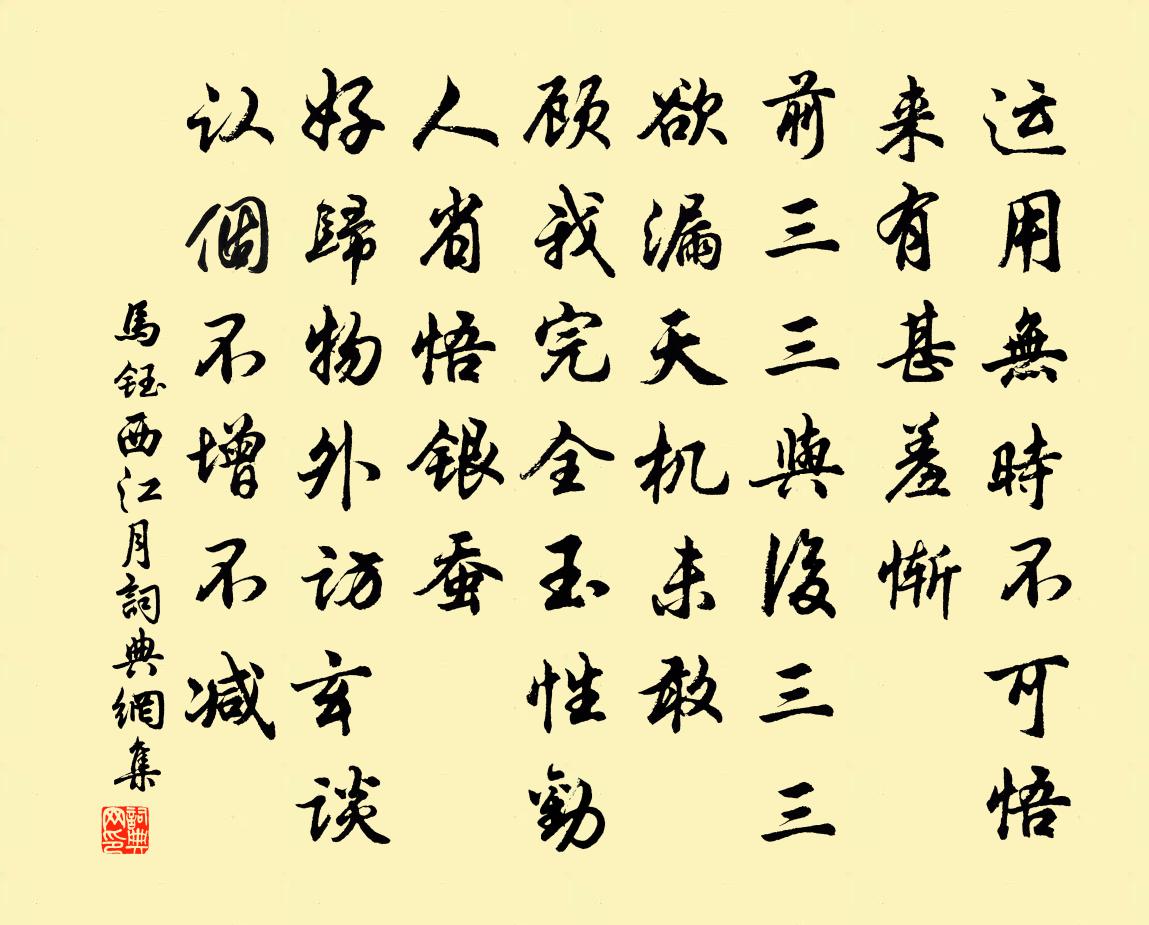 运用無時不可悟
来有甚羞慚
前三三與後三三
欲漏天机未敢
顾我完全玉性勸
人省悟銀蚕
好歸物外访玄谈
认個不增不减
馬鈺西江月詞典網集
詞典网印